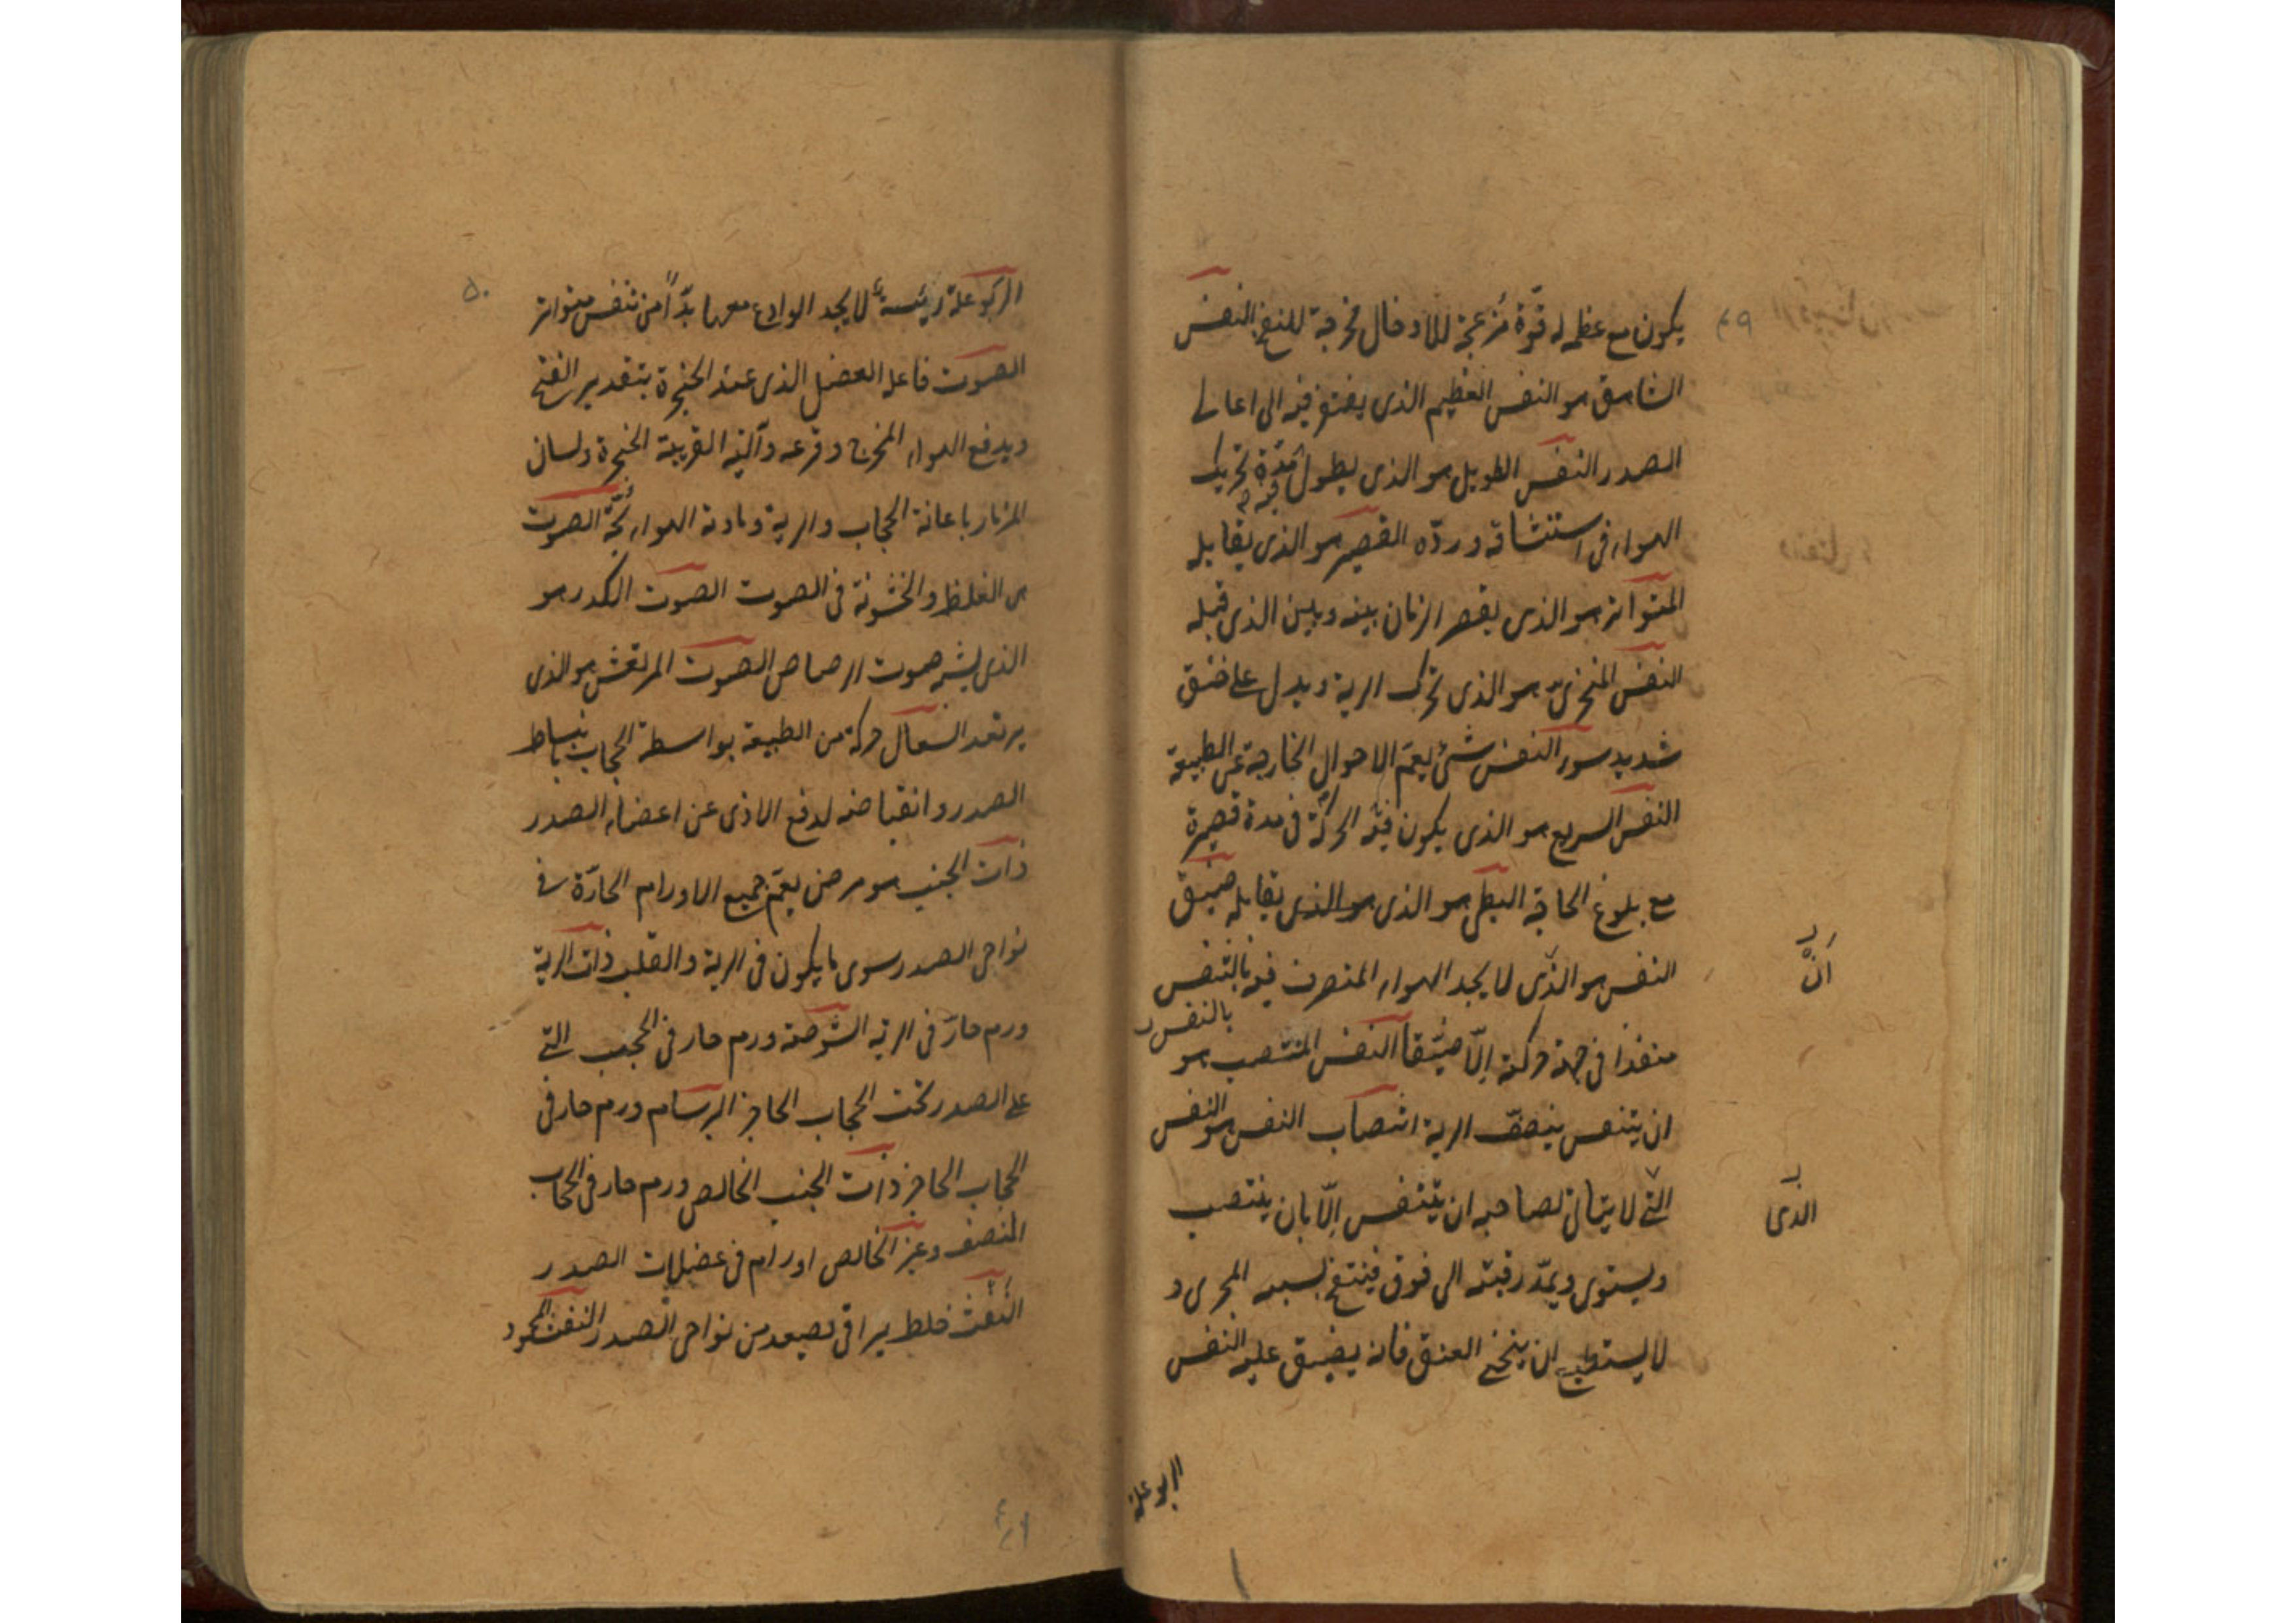 ٤٩
يكون مع عظمه له قوّة مزعجة للادخال مخرجة للنفخ النفس
الشاهق هو النفس العظيم الذى يفتقر فيه الى اعالى
الصدر النفس الطويل هو الذى يطول مدّة تحريك
فيه
الهواء فى استنشاقه وردّه القصير هو الذى يقابله
المتواتر هو الذى يقصر الزمان بينه وبين الذى قبله
النفس المنخرى هو الذى تحرك الرية ويدل على ضيق
شديد سوء النفس شئ يعمّ الاحوال الخارجة عن الطبيعة
النفس السريع هو الذى يكون فيه الحركة فى مدة قصيرة
مع بلوغ الحاجة البطئ هو الذى هو الذى يقابله ضيق
النفس هو الذى لا يجد الهواء المتصرف فيه بالتنفس
بالنفس
منفذا فى جهة حركته الّا ضيّقا النفس المنتصب هو
انّ
ان يتنفس بنصف الرية انتصاب النفس هو النفس
التى لا يتهاتى لصاحبه ان يتنفس الّا بان ينتصب
الذى
ويستوى ويمدّ رقبته الى فوق فينفتح بسببه المجرى و
لا يستطيع ان ينحنى العنق فانه يضيق عليه النفس
الربو علة
٥٠
الربو علة رئيسة لا يجد الوادع معها بدّا من تنفس متواتر
الصوت فاعله العضل الذى عند الحنجرة بتقدير الفتح
ويدفع الهواء المخرج وقرعه وآلته القريبة الحنجرة ولسان
المزمار باعانة الحجاب والرية ومادته الهواء بحّة الصوت
هى الغلظ والخشونة فى الصوت الصوت الكدر هو
الذى يشبه صوت الرصاص الصوت المرتعش هو الذى
يرتعد السعال حركة من الطبيعة بواسطة الحجاب بانبساط
الصدر وانقباضه لدفع الاذى عن اعضاء الصدر
ذات الجنب هو مرض يعمّ جميع الاورام الحارّة فى
نواحى الصدر سوى ما يكون فى الرية والقلب ذات الرية
ورم حارّ فى الرية الشوصة ورم حار فى الحجب التى
على الصدر تحت الحجاب الحاجز البرسام ورم حار فى
الحجاب الحاجز ذات الجنب الخالص ورم حار فى الحجاب
المنصف وغير الخالص اورام فى عضلات الصدر
النفث خلط براقى يصعد من نواحى الصدر النفث المحمود